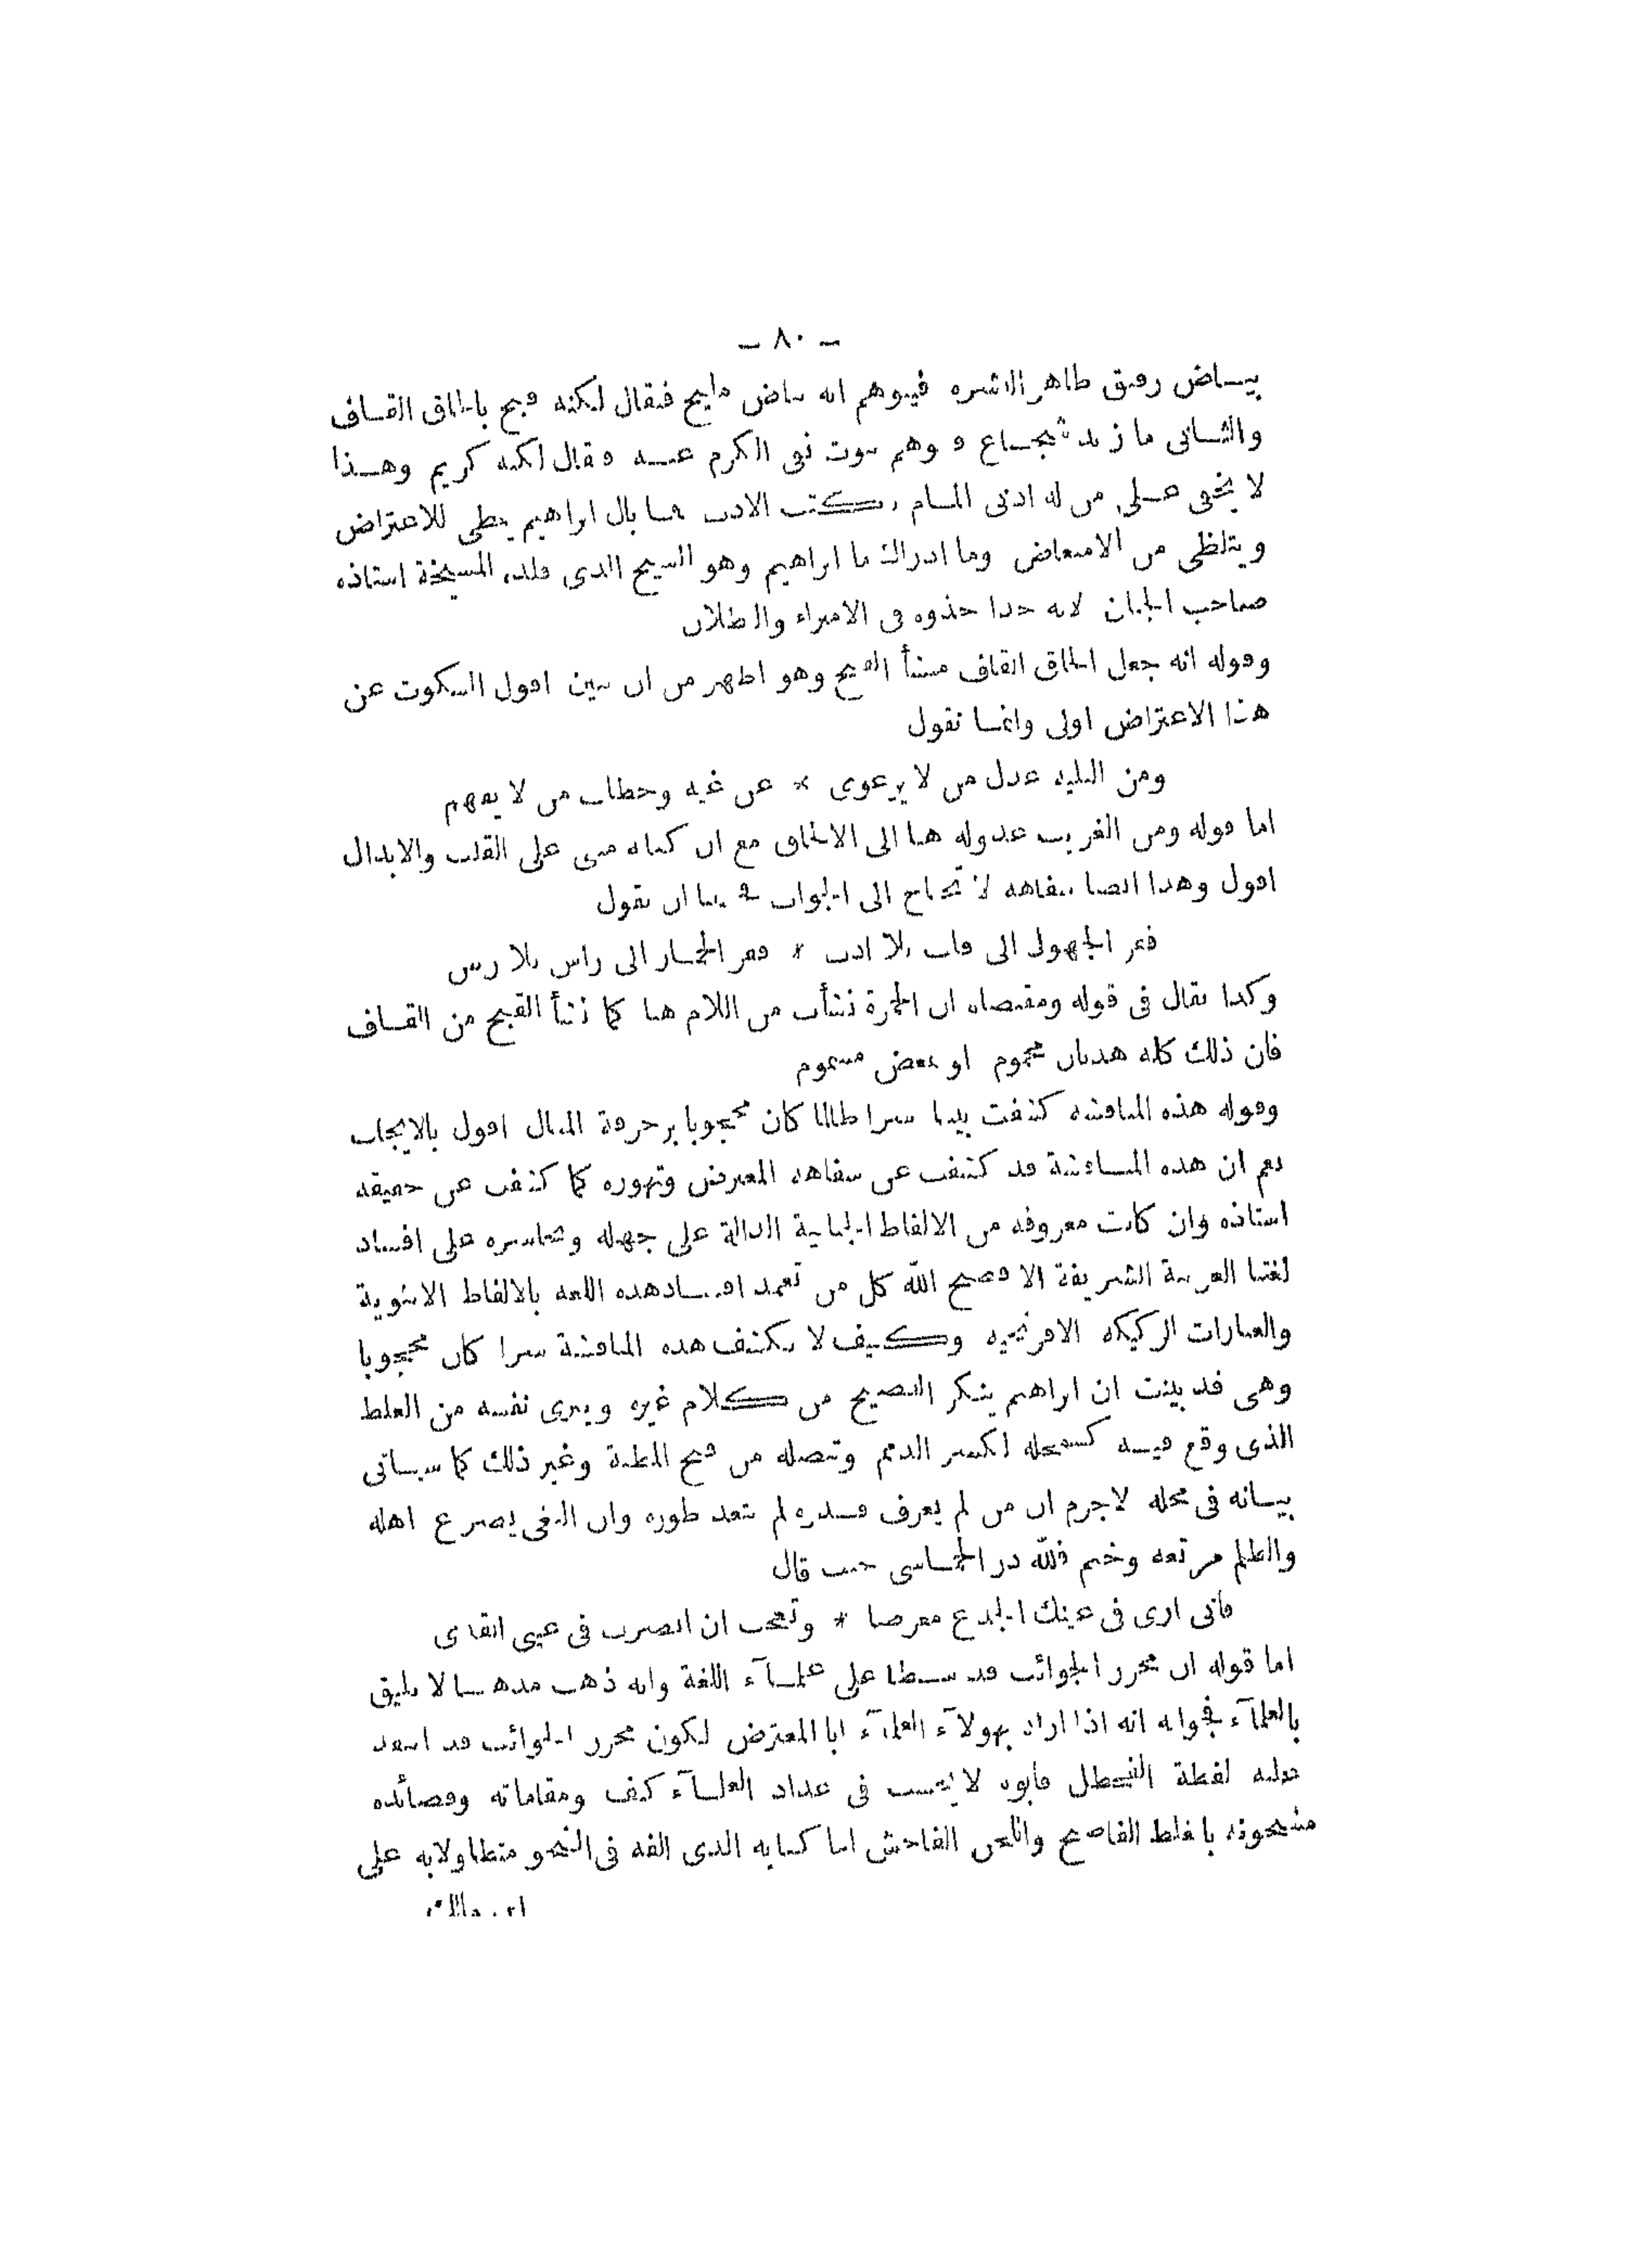 – ٨٠ –
بيـاض رقيق ظاهر البشره فيوهم انه بياض مليح فقال لكنه قبيح بالحاق القـاف
والثـانى ما زيد شجـاع فوهم ثبوت نفى الكرم عنـه فقال لكنه كريم وهـذا
لا يخفى عـلى من له ادنى المـام بكتب الادب فما بال ابراهيم يتمطى للاعتراض
ويتلظى من الامتعاض وما ادراك ما ابراهيم وهو الشيخ الذى قلده المشيخة استاذه
صاحب الجنان لانه حذا حذوه فى الافتراء والبطلان
وقوله انه جعل الحاق القاف منشأ القبح وهو اظهر من ان يبين اقول السكوت عن
هذا الاعتراض اولى وانمـا نقول
ومن البلية عذل من لا يرعوى * عن غيه وخطاب من لا يفهم
اما قوله ومن الغريب عدوله هنا الى الالحاق مع ان كتابه مبنى على القلب والابدال
اقول وهذا ايضا سفاهه لا تحتاج الى الجواب فحسبنا ان نقول
فقر الجهول الى قلب بلا ادب * فقر الحمـار الى راس بلا رسن
وكذا يقال فى قوله ومقتضاه ان الحمرة نشأت من اللام هنا كما نشأ القبح من القـاف
فان ذلك كله هذيان محموم او بعض مسموم
وقوله هذه المناقشه كشفت بيننا سرا طالما كان محجوبا بزخرفة المقال اقول بالايجاب
نعم ان هذه المنـاقشة قد كشفت عن سفاهة المعترض وتهوره كما كشفت عن حقيقة
استاذه وان كانت معروفه من الالفاظ الجنانية الدالة على جهله وتجاسره على افساد
لغتنا العربية الشريفة الا فقبح الله كل من تعمد افسـاد هذه اللغه بالالفاظ الاشوية
والعبارات الركيكه الافرنجيه وكيف لا تكشف هذه المناقشة سرا كان محجوبا
وهى قد بينت ان ابراهيم ينكر الفصيح من كلام غيره ويبرى نفسه من الغلط
الذى وقع فيـه وغير ذلك كما سيـاتى
بيـانه فى محله لا جرم ان من لم يعرف قـدره لم يتعد طوره وان البغى يصرع اهله
والظلم مرتعه وخيم فلله در الحمـاسى حيث قال
فانى ارى فى عينك الجذع معرضا * وتعجب ان ابصرت فى عينى القذى
اما قوله ان محرر الجوائب قد سـطا على علمـآء اللغة وانه ذهب مذهبـا لا يليق
بالعلمآء فجوابه انه اذا اراد بهولآء العلمآء ابا المعترض لكون محرر الجوائب قد انتقد
عليه لفظة الفحطل فابوه لا يحسب فى عداد العلمـآء كيف ومقاماته وقصائده
مشحونه بالغلط الفاضح واللحن الفاحش اما كتابه الذى الفه فى النحو متطاولا به على
ابن مالك